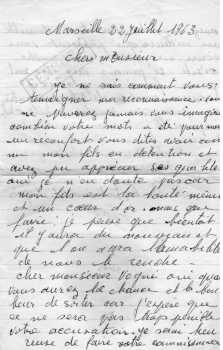 Marseille 22 juillet 1963.
cher monsieur
je ne sais comment vous
témoigner ma reconnaissance
ne pouvez jamais vous imaginer
combien votre mots a été pour moi
un reconfort vous dites avoir connu
mon fils en detention et
avez pu apprecier ses qualités
oui je n'en doute pas car
mon fils est la bonté même
et un cœur d'or
faire. je pense que bientot
il y aura du nouveau et
que l'on aura l'amabilité
de nous le rendre
cher monsieur
vous avez la chance et le bon
heur de sortir car j'espère que
ce ne sera pas trop pénible
votre accusation. je serai heu
reuse de faire votre connaissance